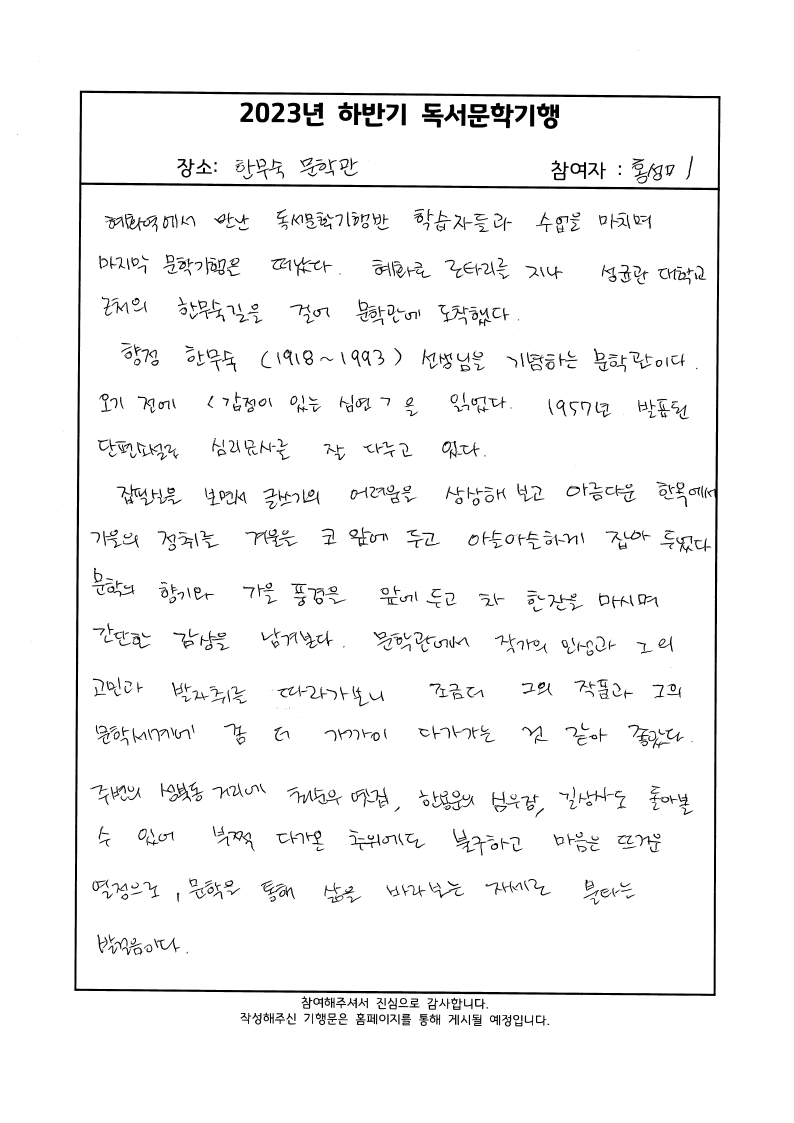 2023년 하반기 독서문학기행
장소: 한무숙 문학관 참여자 : 홍성미
혜화역에서 만난 독서문학기행반 학습자들과 수업을 마치며
마지막 문학기행을 떠났다. 혜화로 로타리를 지나 성균관 대학교
근처의 한무숙길을 걸어 문학관에 도착했다.
향정 한무숙 (1918~1993) 선생님을 기념하는 문학관이다.
오기 전에 <감정이 있는 심연>을 읽었다. 1957년 발표된
단편소설로 심리묘사를 잘 다루고 있다.
집필실을 보면서 글쓰기의 어려움을 상상해 보고 아름다운 한옥에서
가을의 정취를 겨울을 코 앞에 두고 아슬아슬하게 잡아 두었다
문학의 향기와 가을 풍경을 앞에 두고 차 한잔을 마시며
간단한 감상을 남겨본다. 문학관에서 작가의 인생과 그의
고민과 발자취를 따라가보니 조금더 그의 작품과 그의
문학세계에 좀 더 가까이 다가가는 것 같아 좋았다.
주변의 성북동 거리에 최순우 옛집, 한용운의 심우장, 길상사도 돌아볼
수 있어 부쩍 다가온 추위에도 불구하고 마음은 뜨거운
열정으로, 문학을 통해 삶을 바라보는 자세로 불타는
발걸음이다.
참여해주셔서 진심으로 감사합니다.
작성해주신 기행문은 홈페이지를 통해 게시될 예정입니다.